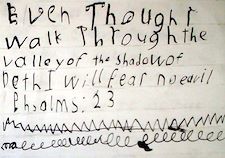 Even Thought
walk Through the
valley of the shadow of
Deth I will fear no eavil
Phsalms: 23